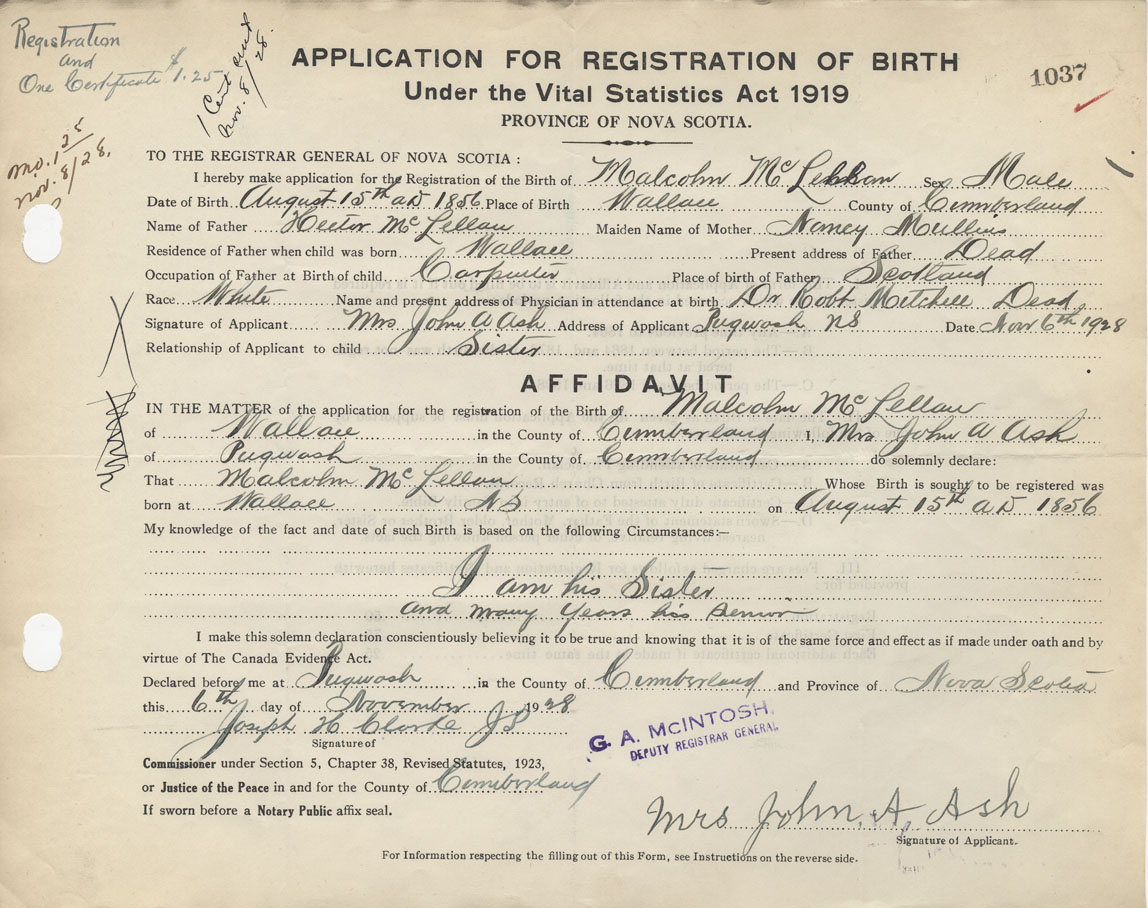 Registration
and
One Certificate $1.25
1 Cent
Nov. 8/28.
mo. 1 25
Nov. 8/28.
APPLICATION FOR REGISTRATION OF BIRTH
1037
Under the Vital Statistics Act 1919
PROVINCE OF NOVA SCOTIA.
TO THE REGISTRAR GENERAL OF NOVA SCOTIA :
I hereby make application for the Registration of the Birth of Malcolm McLellan Sex Male
Date of Birth August 15th AD 1856 Place of Birth Wallace County of Cumberland
Name of Father Hector McLellan Maiden Name of Mother Nancy Mullins
Residence of Father when child was born Wallace Present address of Father Dead
Occupation of Father at Birth of child Carpenter Place of birth of Father Scotland
Race White Name and present address of Physician in attendance at birth Dr Robt Mitchell Dead
Signature of Applicant Mrs John A Ash Address of Applicant Pugwash NS Date Nov 6th 1928
Relationship of Applicant to child Sister
AFFIDAVIT
IN THE MATTER of the application for the registration of the Birth of Malcolm McLellan
of Wallace in the County of Cumberland I, Mrs John A Ash
of Pugwash in the County of Cumberland do solemnly declare:
That Malcolm McLellan Whose Birth is sought to be registered was
born at Wallace NS on August 15th AD 1856
My knowledge of the fact and date of such Birth is based on the following Circumstances:—
I am his Sister
and many Years his Senior
I make this solemn declaration conscientiously believing it to be true and knowing that it is of the same force and effect as if made under oath and by
virtue of The Canada Evidence Act.
Declared before me at Pugwash in the County of Cumberland and Province of Nova Scotia
this 6th day of November 1928
Joseph H Clarke JP
Signature of
G. A. McINTOSH.
DEPUTY REGISTRAR GENERAL
Commissioner under Section 5, Chapter 38, Revised Statutes, 1923,
or Justice of the Peace in and for the County of Cumberland
If sworn before a Notary Public affix seal.
Mrs John. A. Ash
Signature of Applicant.
For Information respecting the filling out of this Form, see Instructions on the reverse side.